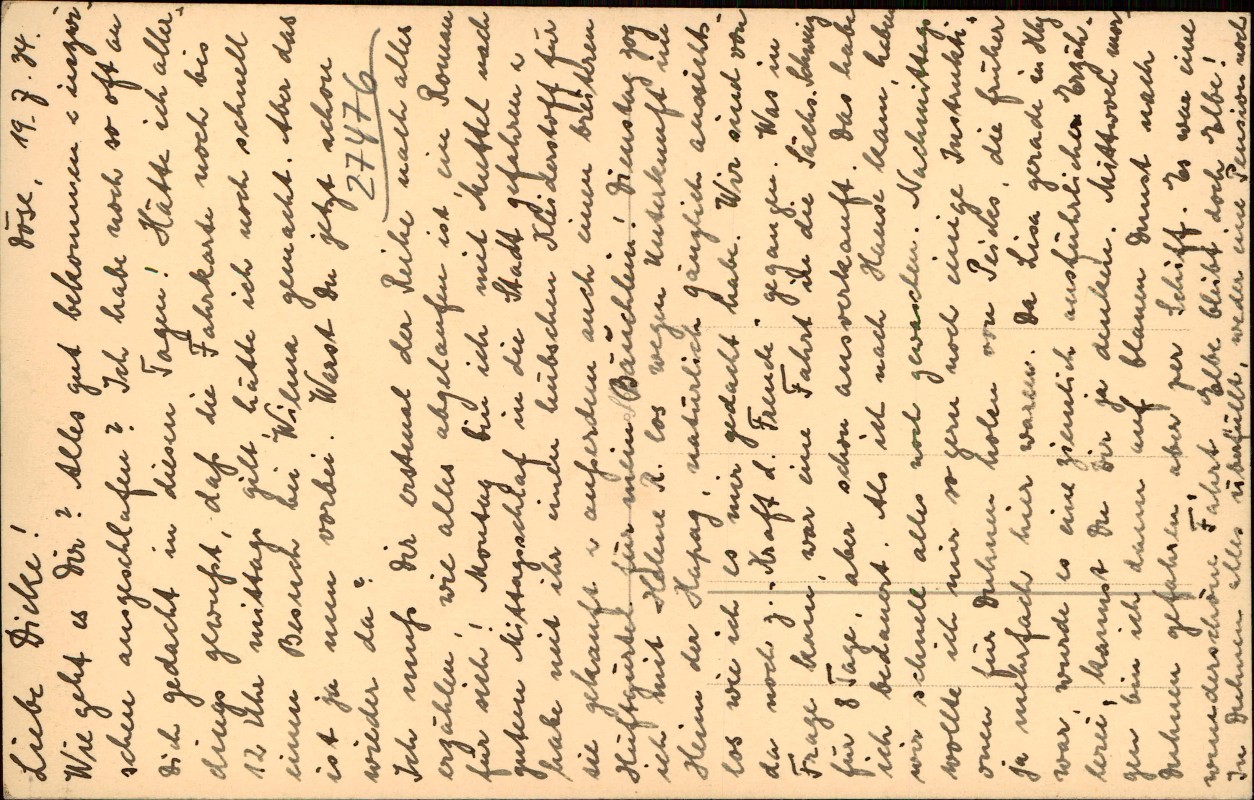 Liebe Dicke!
Döse, 19. 7. 34.
Wie geht es Dir? Alles gut bekommen u inzwi-
schen ausgeschlafen? Ich habe noch so oft an
Dich gedacht in diesen Tagen! Hätte ich aller-
dings gewusst, daß die Fahrkarte noch bis
12 Uhr mittags gilt hätte ich noch schnell
einen Besuch bei Wilma gemacht. Aber das
ist ja nun vorbei. Warst Du jetzt schon
wieder da?
27476
Ich muß Dir erstmal der Reihe nach alles
erzählen, wie alles abgelaufen ist, ein Roman
für sich! Montag bin ich mit Muttel nach
guten Mittagsschlaf in die Stadt gefahren u
habe mit ihr einen hübschen Kleiderstoff für
sie gekauft u außerdem auch einen breiteren
Hüftgürtel für mein Bäuchlein! Dienstag zog
ich mit Helene R. los wegen Unterkunft in
Heim der Hapag, natürlich gänzlich aussichts-
los wie ich es mir gedacht habe. Wir sind von
da noch z. Kraft d. Freude gegangen. Was in
Frage kam, war eine Fahrt in die Sächs. Schweiz
für 8 Tage, aber schon ausverkauft. Das habe
ich bedauert. Als ich nach Hause kam, haben
wir schnell alles noch gewaschen. Nachmittag
wollte ich mir so gern noch einige Instrukti-
onen für Duhnen holen von die früher
ja mehrfach hier waren. Da Lisa gerade in Hbg
war, wurde es eine ziemlich ausführliche Erzäh-
lerei, kannst Du Dir ja denken. Mittwoch mor-
gen bin ich dann auf blauen Dunst nach
Duhnen gefahren aber per Schiff. Es war eine
wunderschöne Fahrt, Elbe bleibt doch Elbe!
In Duhnen alles überfüllt, weder eine Pension noch